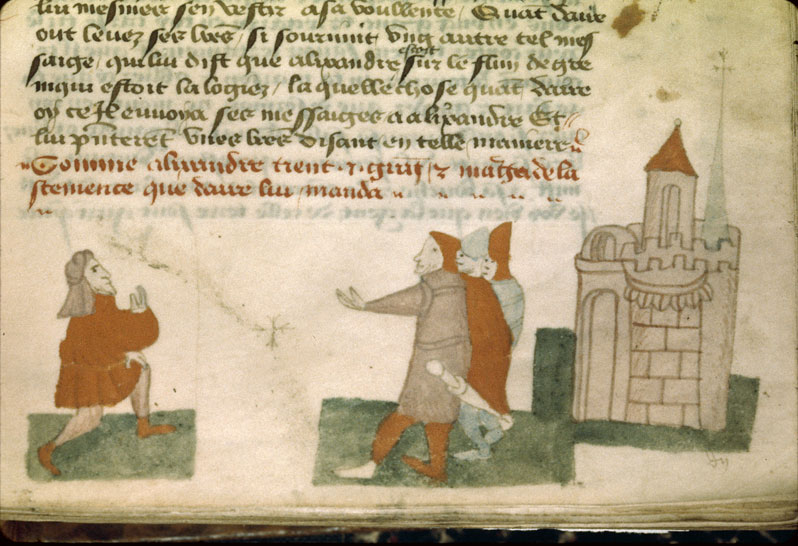 lui mesmes sen vestir a sa voullente / Quāt daire
out leuez ses lrēs / si souruint vng autre tel mes
saige / qui lui dist que alixandre estoit sur le flun de gre
inqui estoit la logiez / la quelle chose quāt daire
oy ce Il enuoya ses messaiges a alix̄andre Et
lui pn̄terēt vnes lrēs disant en telle maniere
Comme alixandre tient & la
stemence que daire lui manda